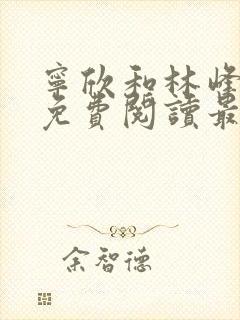 寧欣和林峰
免費閱讀最
余智德